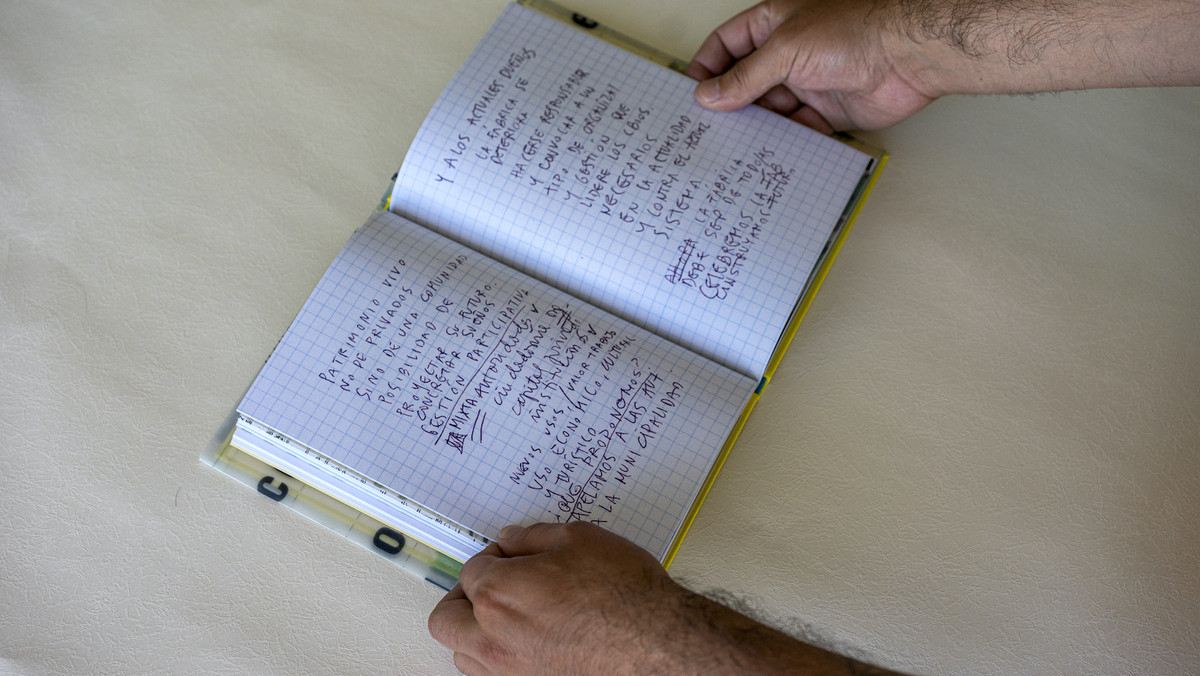 PATRIMONIO VIVO
NO DE PRIVADOS
SINO DE UNA COMUNIDAD
POSIBILIDAD DE
PROYECTAR SU FUTURO.
CONCRETAR SUEÑOS
GESTIÓN PARTICIPATIVA
MIXTA AUTORIDADES Y
ciudadanía
capital
institución
NUEVOS USOS / VALOR TRABAJO
USO ECONÓMICO, CULTURAL
Y TURÍSTICO
¿QUE PROPONEMOS?
APELAMOS A LAS AUT.
A LA MUNICIPALIDAD
Y A LOS ACTUALES DUEÑOS
LA FABRICA SE
DETERIORA
HACERSE RESPONSABLE
Y CONVOCAR A UN
TIPO DE
Y GESTIÓN QUE
LIDERE LOS CBIOS
NECESARIOS
EN LA ACTUALIDAD
Y CONTRA EL ACTUAL
SISTEMA
AHORA LA FABRICA
DEBE SER DE TODOS/AS
CELEBREMOS LA FAB
CONSTRUYAMOS FUTURO.
C
O